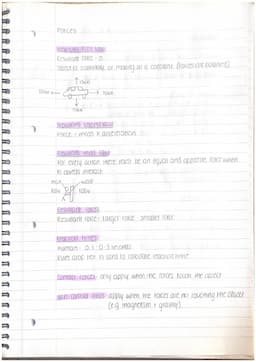 Forces
Newtons first law
Resultant force = 0
object is stationary or moving at a constant (forces are balanced)
10cm
10cm
Newtons second law
Force = mass x acceleration
Newtons third law
For every action there must be an equal and opposite force when
objects interact
100N
100N
Resultant forces
Resultant force = larger force - smaller force
Reaction times
Human = 0.2 - 0.3 seconds
Ruler drop test is used to calculate reaction time
Contact forces: only apply when the forces touch the object
Non contact forces apply when the forces are not touching the object
(e.g magnetism + gravity)